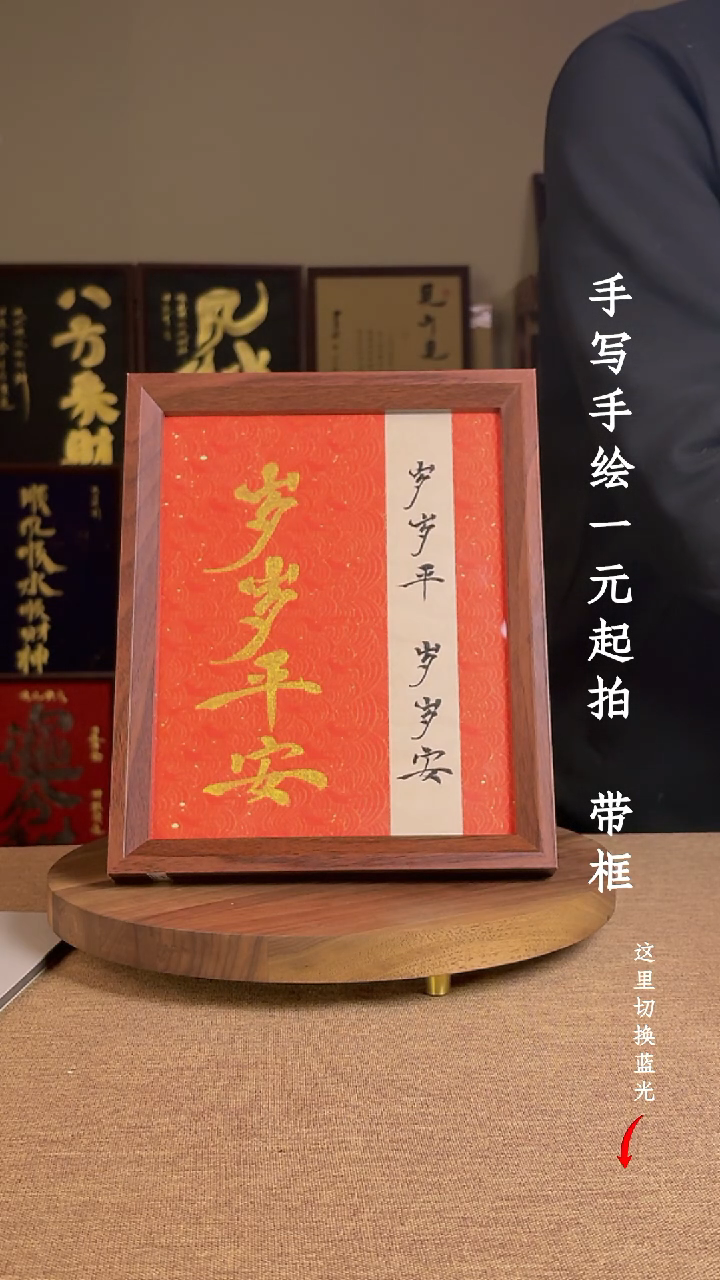 手写手绘一元起拍 带框
这里切换蓝光
岁岁平安
岁岁平 岁岁安
八方来财
顺风顺水顺财神